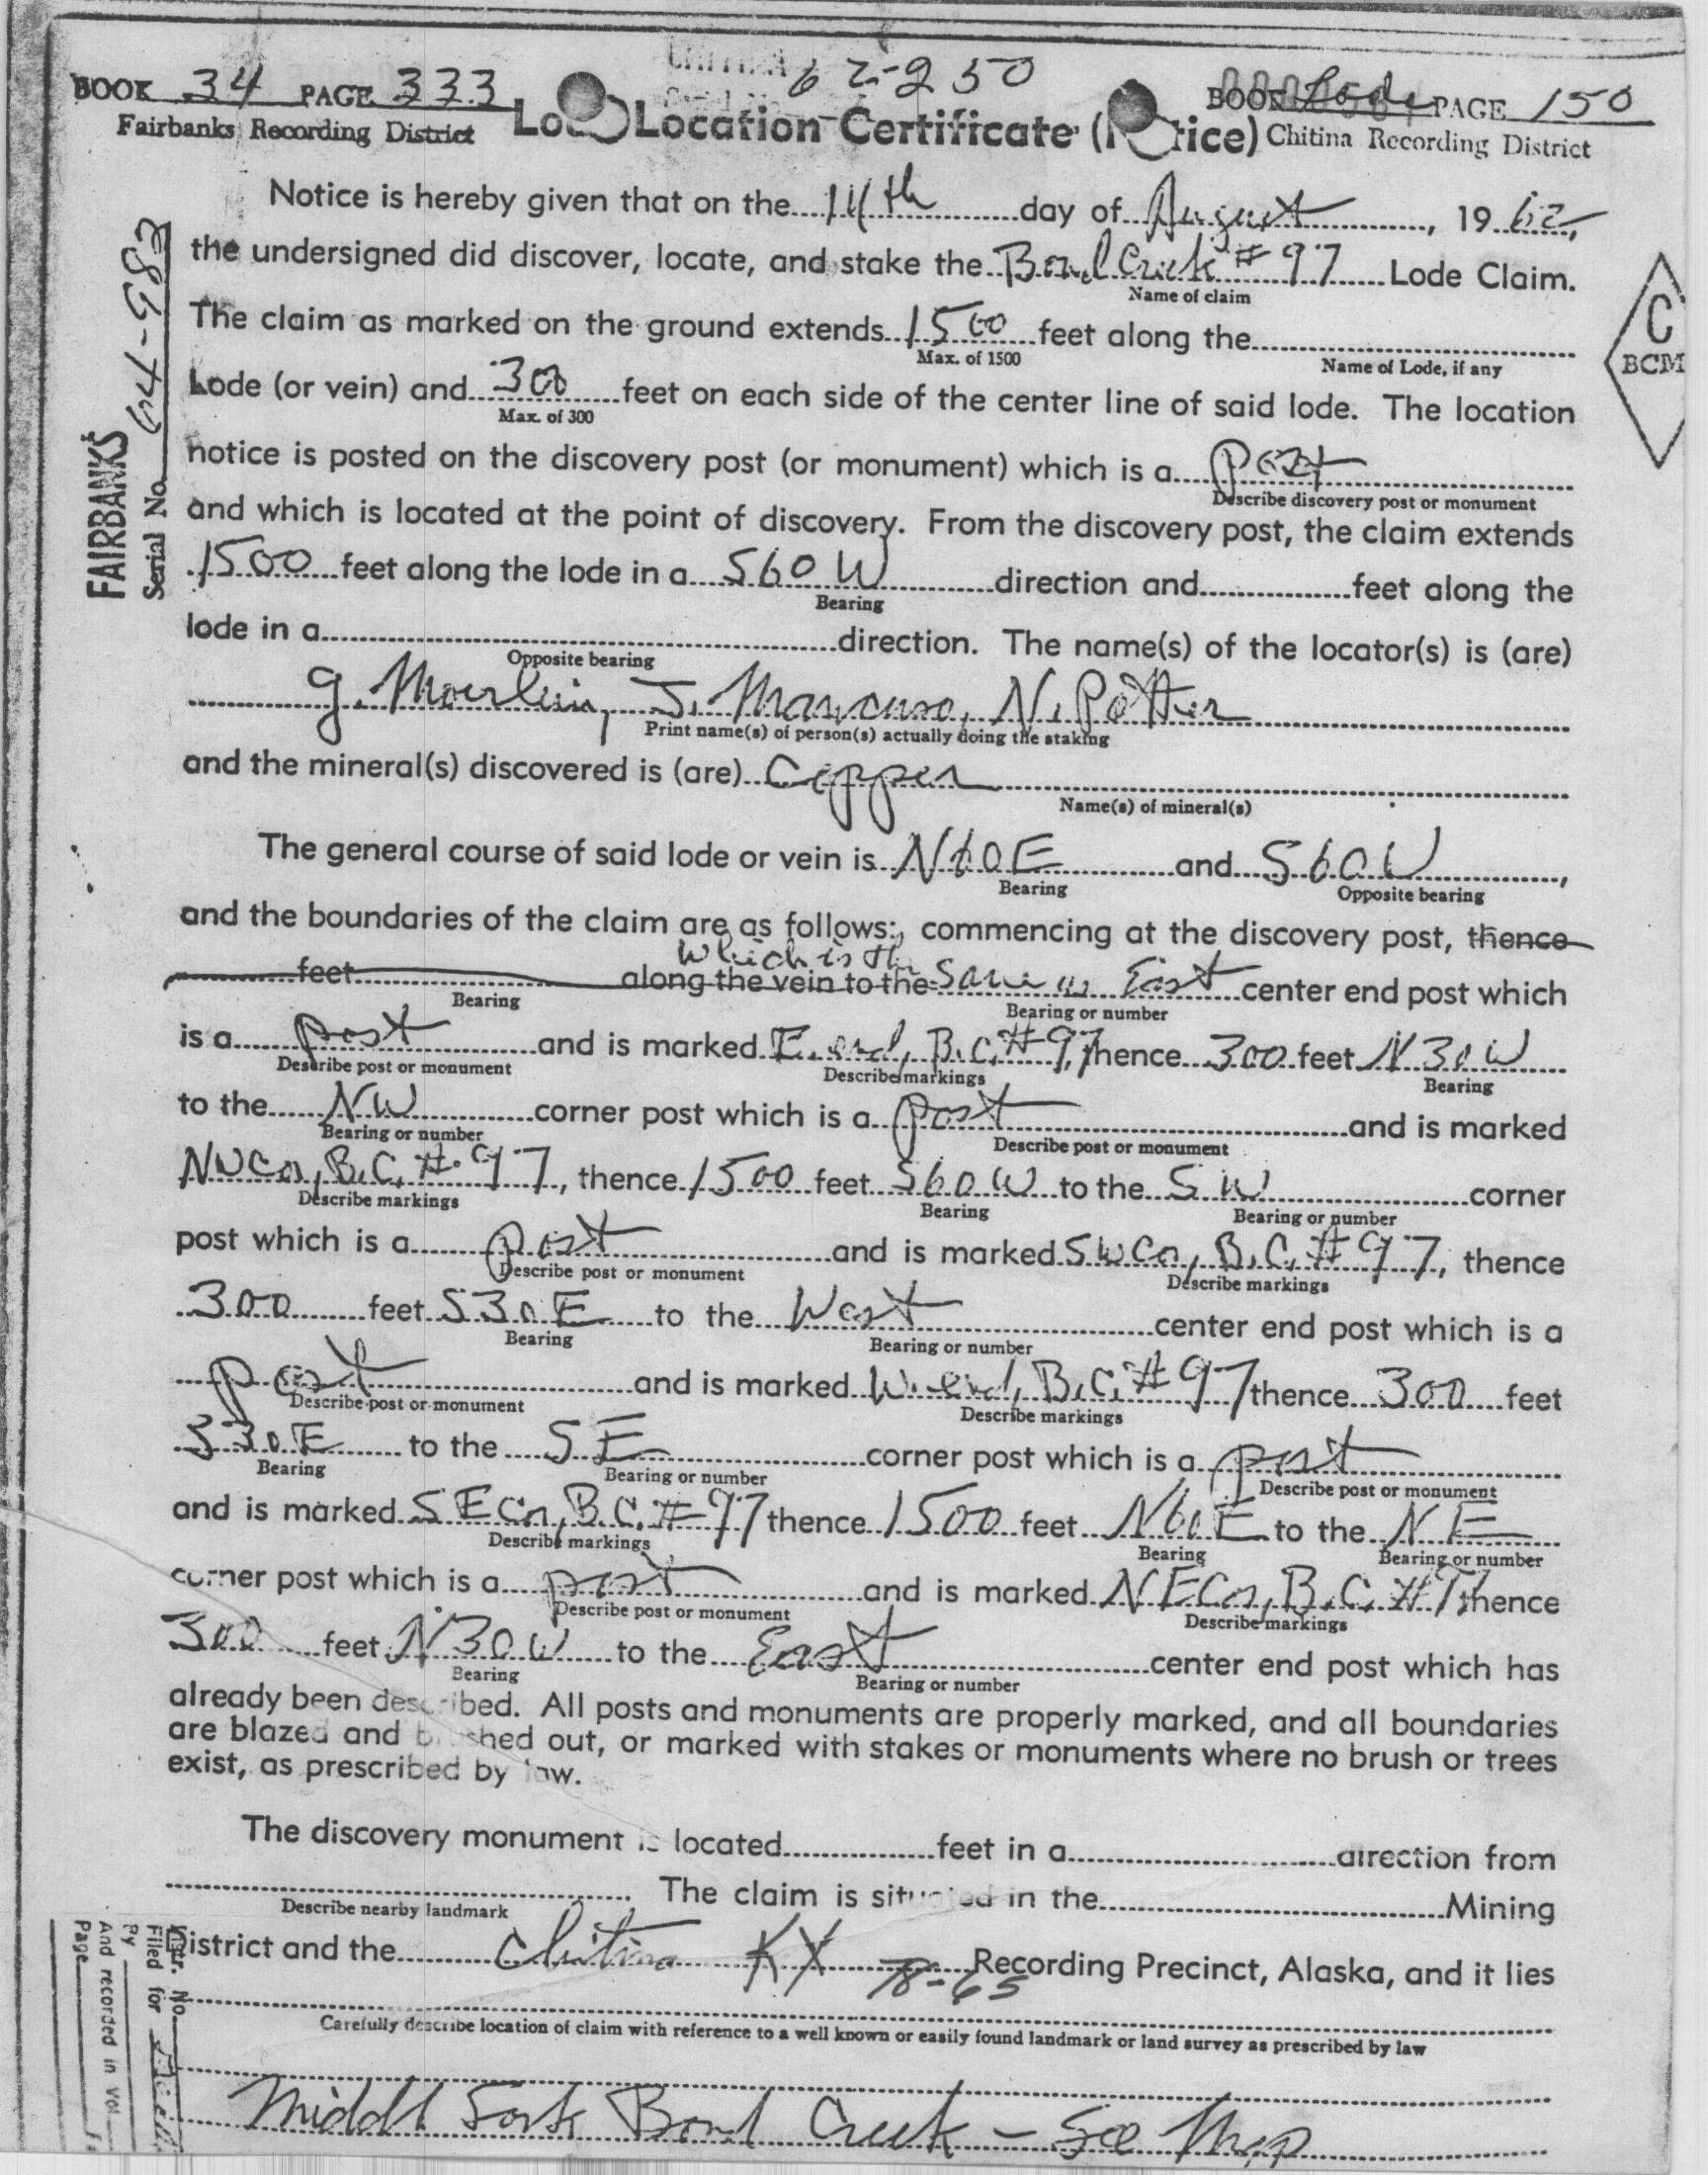 BOOK 34 PAGE 333
Fairbanks Recording District
62-250
BOOK Lode PAGE 150
Chitina Recording District
Location Certificate
Notice is hereby given that on the 14th day of August, 1962,
the undersigned did discover, locate, and stake the Bond Creek #97 Lode Claim.
Name of claim
The claim as marked on the ground extends 1500 feet along the
Max. of 1500 Name of Lode, if any
Lode (or vein) and 300 feet on each side of the center line of said lode. The location
Max. of 300
notice is posted on the discovery post (or monument) which is a post
Describe discovery post or monument
and which is located at the point of discovery. From the discovery post, the claim extends
1500 feet along the lode in a S60W direction and feet along the
Bearing
lode in a direction. The name(s) of the locator(s) is (are)
Opposite bearing
G. Moerlein, J. Mancuso, N. Potter
Print name(s) of person(s) actually doing the staking
and the mineral(s) discovered is (are) Copper
Name(s) of mineral(s)
The general course of said lode or vein is N60E and S60W,
Bearing Opposite bearing
and the boundaries of the claim are as follows: commencing at the discovery post, thence
which is the
feet along the vein to the same as East center end post which
Bearing Bearing or number
is a post and is marked E. end, B.C. #97, thence 300 feet N30W
Describe post or monument Describe markings Bearing
to the NW corner post which is a post and is marked
Bearing or number Describe post or monument
NW Co, B.C. #97, thence 1500 feet S60W to the SW corner
Describe markings Bearing Bearing or number
post which is a post and is marked SW Co, B.C. #97, thence
Describe post or monument Describe markings
300 feet S30E to the West center end post which is a
Bearing Bearing or number
post and is marked W. end, B.C. #97 thence 300 feet
Describe post or monument Describe markings
S30E to the SE corner post which is a post
Bearing Bearing or number Describe post or monument
and is marked SE Co, B.C. #97 thence 1500 feet N60E to the NE
Describe markings Bearing Bearing or number
corner post which is a post and is marked NE Co, B.C. #97 thence
Describe post or monument Describe markings
300 feet N30W to the East center end post which has
Bearing Bearing or number
already been described. All posts and monuments are properly marked, and all boundaries
are blazed and brushed out, or marked with stakes or monuments where no brush or trees
exist, as prescribed by law.
The discovery monument is located feet in a direction from
Describe nearby landmark
The claim is situated in the Mining
District and the Chitina KX 78-65 Recording Precinct, Alaska, and it lies
Carefully describe location of claim with reference to a well known or easily found landmark or land survey as prescribed by law
Middle Fork Bond Creek - See Map
FAIRBANKS
Serial No. 64-983
C
BCM
No.
Filed for
By
And recorded in Vol
Page